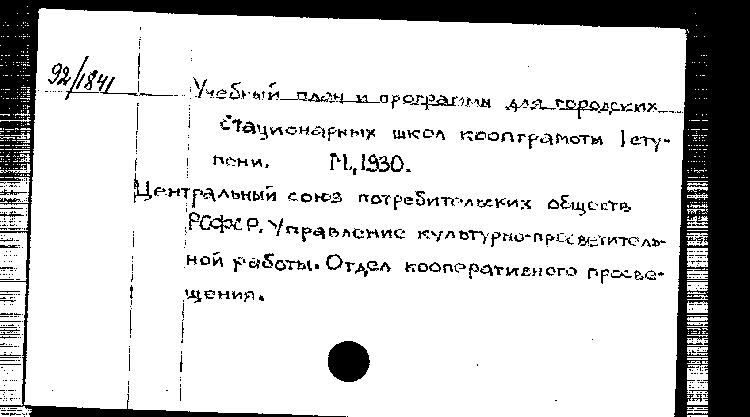 92/1841
Учебный план и программы для городских
стационарных школ коопграмоты I сту-
пени. М., 1930.
Центральный союз потребительских обществ
РСФСР. Управление культурно-просветитель-
ной работы. Отдел кооперативного просве-
щения.